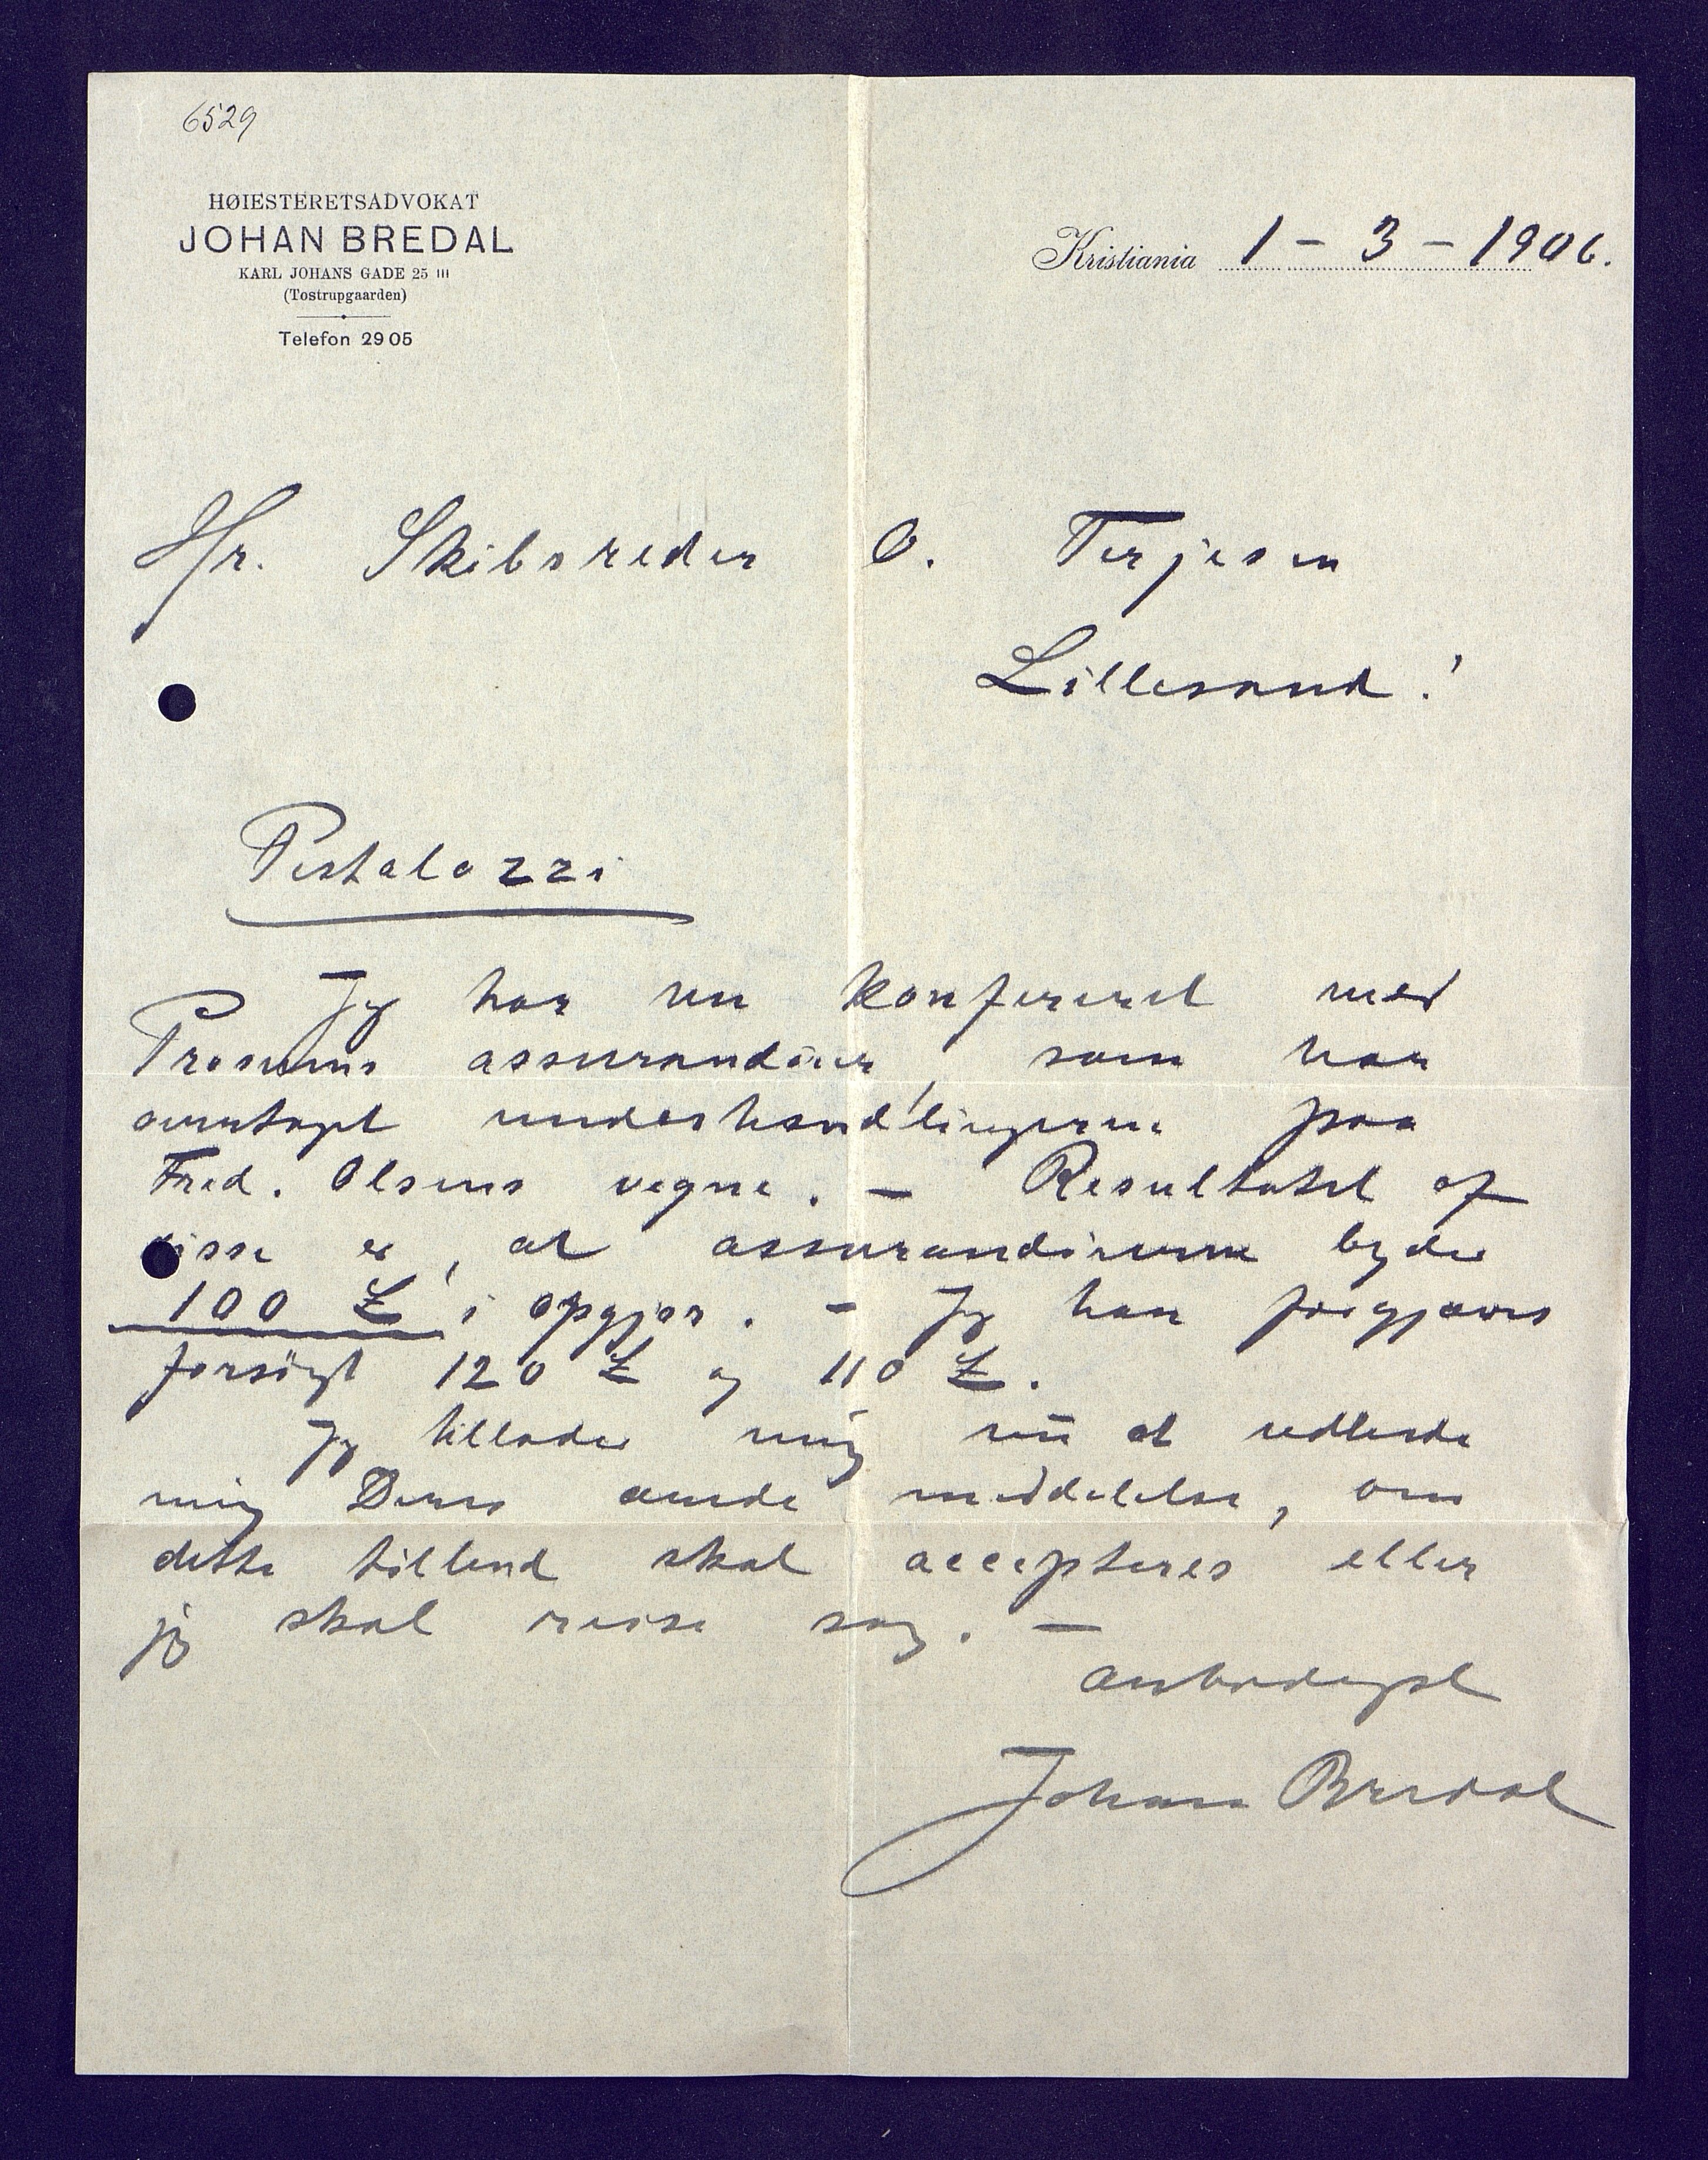 6529
HØIESTERETSADVOKAT
JOHAN BREDAL
KARL JOHANS GADE 25 III
(Tostrupgaarden)
Telefon 2905
Kristiania 1 - 3 - 1906.
Hr. Skibsreder O. Terjesen
Lillesand!
Pestalozzi
Jeg har nu konfereret med
assurandører, som har
overtaget underhandlingerne paa
Fred. Olsens vegne. — Resultatet af
disse er, at assurandørerne byder
100 £ i opgjør. — Jeg har forgjæves
forsögt 120 £ og 110 £.
Jeg tillader mig nu at udbede
mig Deres ærede meddelelse, om
dette tilbud skal accepteres eller
jeg skal reise sag. —
ærbødigst
Johan Bredal